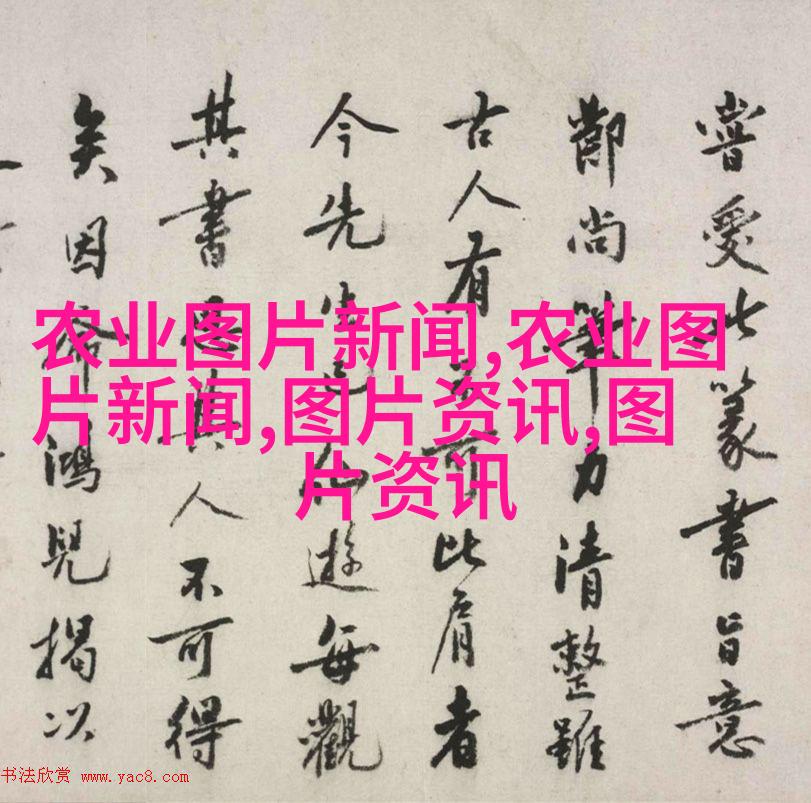 嘗愛此篆書旨意
尚筆力清整雖
古人有可比肩者
今先生已仙遊每觀
其書其人不可得
矣因齊鴻兒揭以
农业图片新闻,农业图
片新闻,图片资讯,图
片资讯
书法欣赏 www.yac8.com